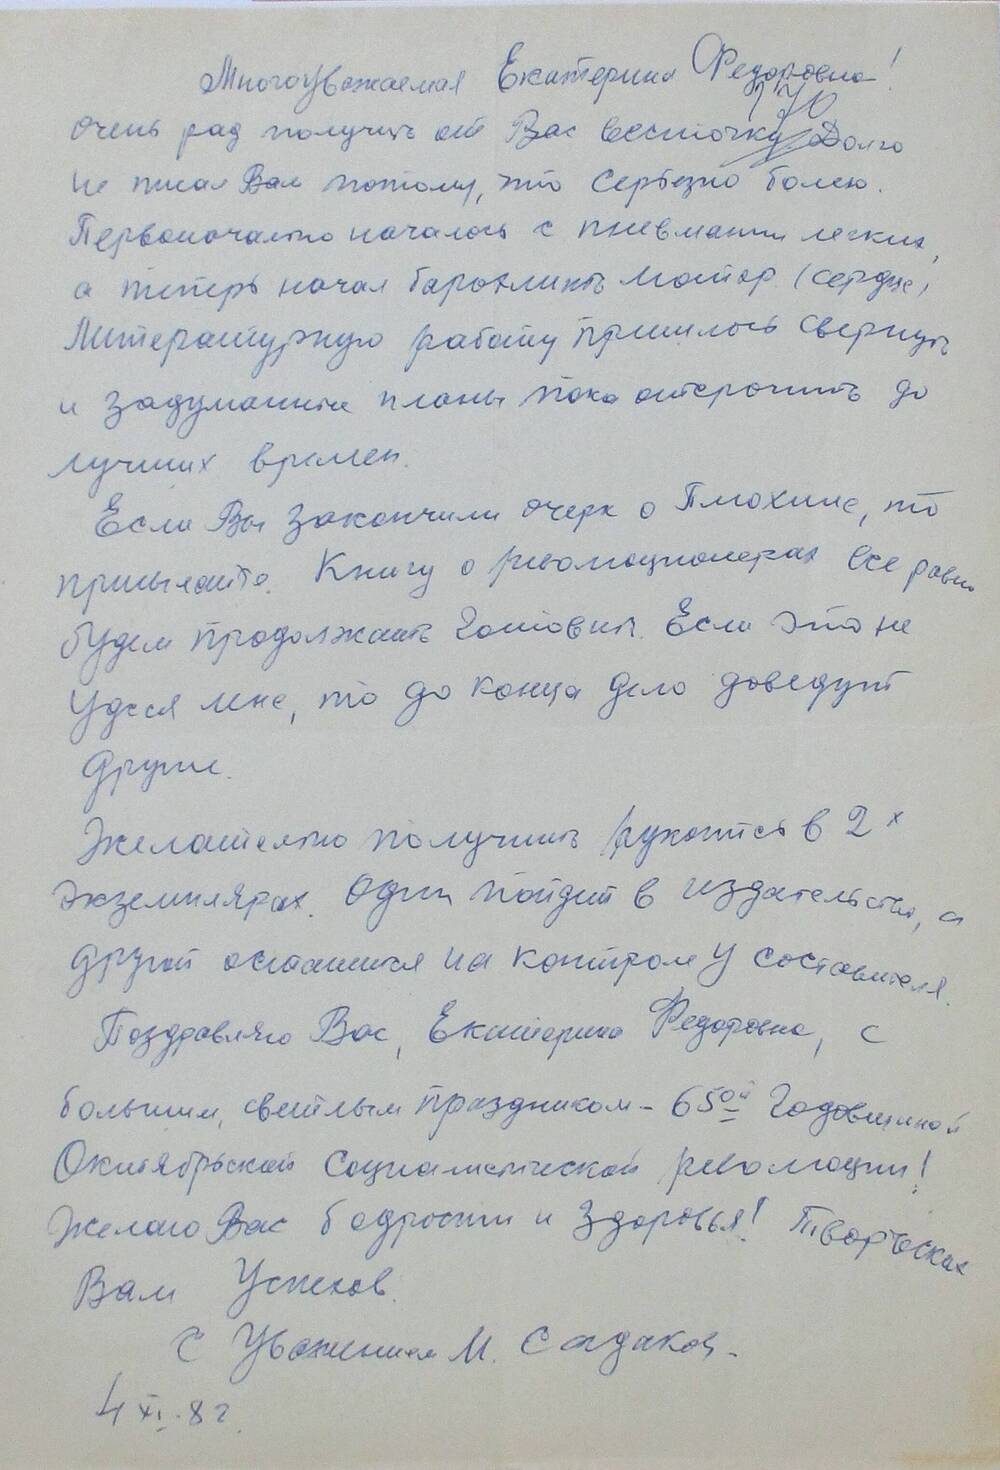 Многоуважаемая Екатерина Федоровна!
170
очень рад получить от Вас весточку. Долго
не писал Вам потому, что серьезно болею.
Первоначально началось с пневмании легких,
а теперь начал барахлить мотор (сердце)
Литературную работу пришлось свернуть
и задуманные планы пока отсрочить до
лучших времен.
Если Вы закончили очерк о Плюхине, то
присылайте. Книгу о революционерах все равно
будем продолжать готовить. Если это не
удася мне, то до конца дело доведут
другие.
Желательно получить рукопись в 2х
экземплярах. Один пойдет в издательство, а
другой останется на контроле у составителя.
Поздравляю Вас, Екатерина Федоровна, с
большим, светлым праздником - 65ой годовщиной
Октябрьской социалистической революции!
Желаю Вас бодрости и здоровья! Творческих
Вам успехов.
С уважением М. Садаков.
4 XI. 82